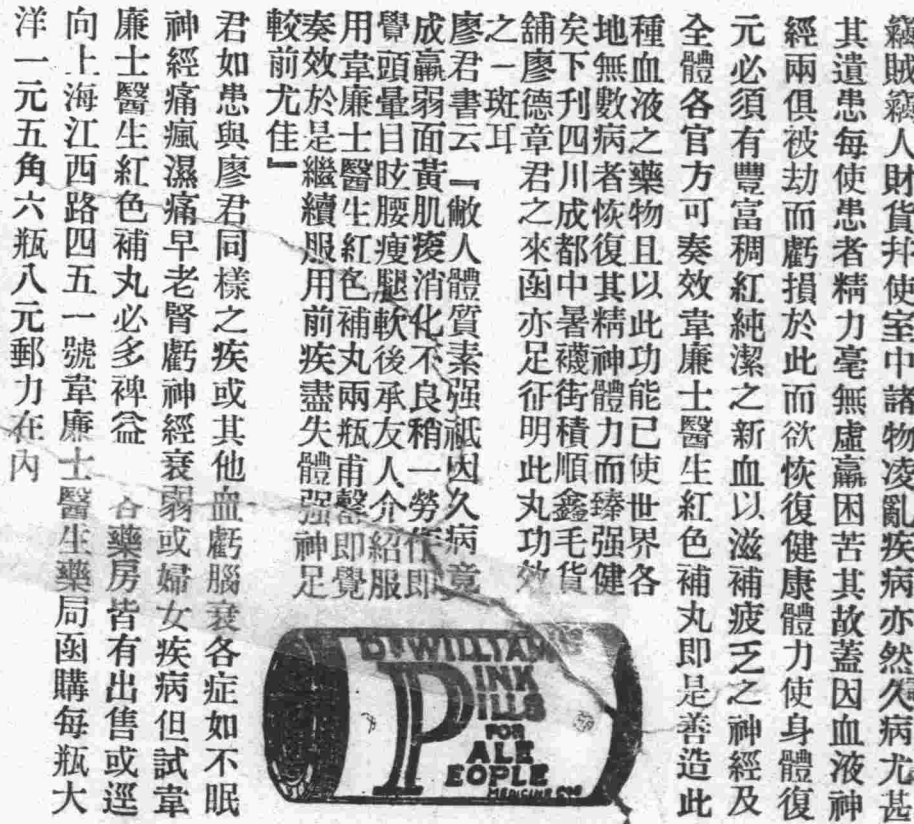 竊賊竊人財貨幷使室中諸物凌亂疾病亦然久病尤甚
其遺患每使患者精力毫無虛羸困苦其故蓋因血液神
經兩俱被劫而虧損於此而欲恢復健康體力使身體復
元必須有豐富稠紅純潔之新血以滋補疲乏之神經及
全體各官方可奏效韋廉士醫生紅色補丸即是善造此
種血液之藥物且以此功能已使世界各
地無數病者恢復其精神體力而臻强健
矣下刊四川成都中暑襪街積順鑫毛貨
舖廖德章君之來函亦足征明此丸功效
之一斑耳
廖君書云『敝人體質素强祇因久病竟
成羸弱面黃肌瘦消化不良稍一勞作即
覺頭暈目眩腰瘦腿軟後承友人介紹服
用韋廉士醫生紅色補丸兩瓶甫罄即覺
奏效於是繼續服用前疾盡失體强神足
較前尤佳』
君如患與廖君同樣之疾或其他血虧腦衰各症如不眠
神經痛瘋濕痛早老腎虧神經衰弱或婦女疾病但試韋
廉士醫生紅色補丸必多裨益 各藥房皆有出售或逕
向上海江西路四五一號韋廉士醫生藥局函購每瓶大
洋一元五角六瓶八元郵力在內
DR WILLIAMS
PINK
PILLS
FOR
ALE
PEOPLE
MEDICINE COO